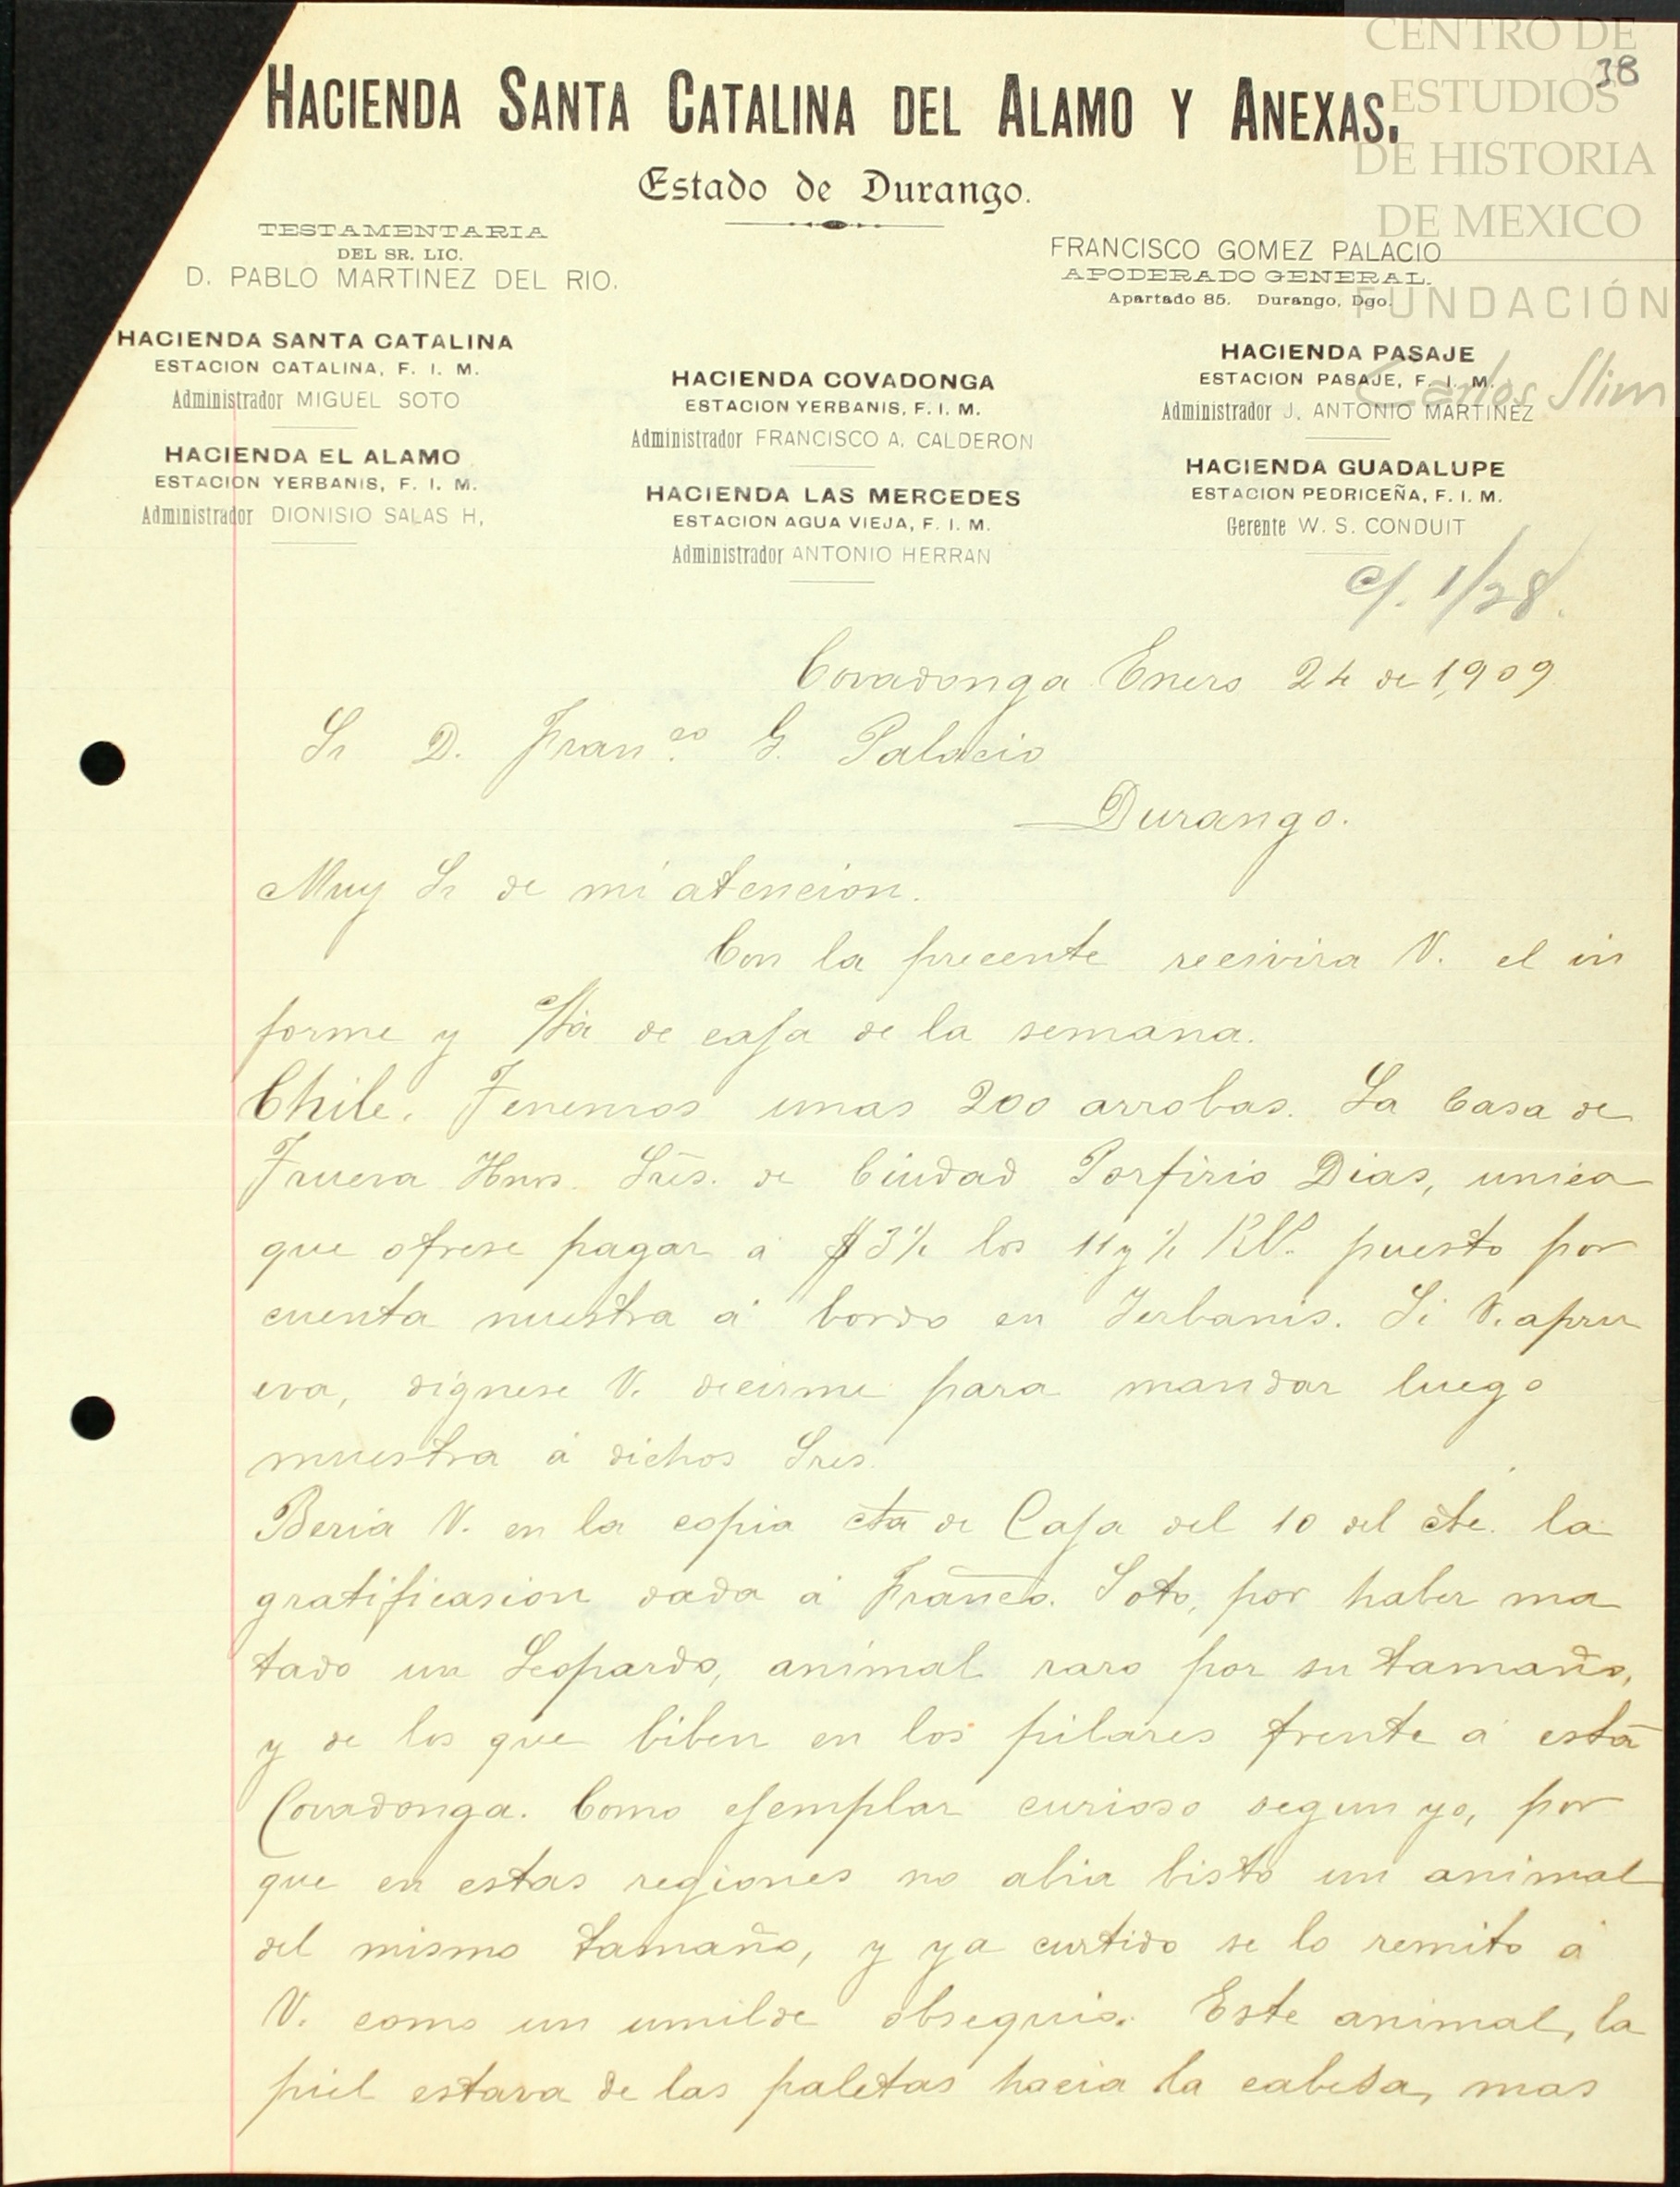 CENTRO DE
ESTUDIOS
DE HISTORIA
DE MEXICO
FUNDACIÓN
Carlos Slim
38
HACIENDA SANTA CATALINA DEL ALAMO Y ANEXAS.
Estado de Durango.
TESTAMENTARIA
DEL SR. LIC.
D. PABLO MARTINEZ DEL RIO.
FRANCISCO GOMEZ PALACIO
APODERADO GENERAL.
Apartado 85. Durango, Dgo.
HACIENDA SANTA CATALINA
ESTACION CATALINA, F. I. M.
Administrador MIGUEL SOTO
HACIENDA EL ALAMO
ESTACION YERBANIS, F. I. M.
Administrador DIONISIO SALAS H.
HACIENDA COVADONGA
ESTACION YERBANIS, F. I. M.
Administrador FRANCISCO A. CALDERON
HACIENDA LAS MERCEDES
ESTACION AGUA VIEJA, F. I. M.
Administrador ANTONIO HERRAN
HACIENDA PASAJE
ESTACION PASAJE, F. I. M.
Administrador J. ANTONIO MARTINEZ
HACIENDA GUADALUPE
ESTACION PEDRICEÑA, F. I. M.
Gerente W. S. CONDUIT
c/. 1/28.
Covadonga Enero 24 de 1,909
Sr D. Fran.co G. Palacio
Durango.
Muy Sr de mi atencion.
Con la precente recivira V. el in
forme y Cta de caja de la semana.
Chile. Tenemos unas 200 arrobas. La Casa de
Trueva Hnos. Sres. de Ciudad Porfirio Dias, unica
que ofrese pagar á $3½ los 11 y ½ Kl. puesto por
cuenta nuestra á bordo en Yerbanis. Si V. apru
eva, dignese V. decirme para mandar luego
muestra á dichos Sres.
Beria V. en la copia cta de Caja del 10 del cte. la
gratificasion dada á Franco. Soto, por haber ma
tado un Leopardo, animal raro por su tamaño,
y de los que biben en los pilares frente á esta
Covadonga. Como ejemplar curioso segun yo, por
que en estas regiones no abia bisto un animal
del mismo tamaño, y ya curtido se lo remito á
V. como un umilde obsequio. Este animal, la
piel estava de las paletas hacia la cabesa, mas